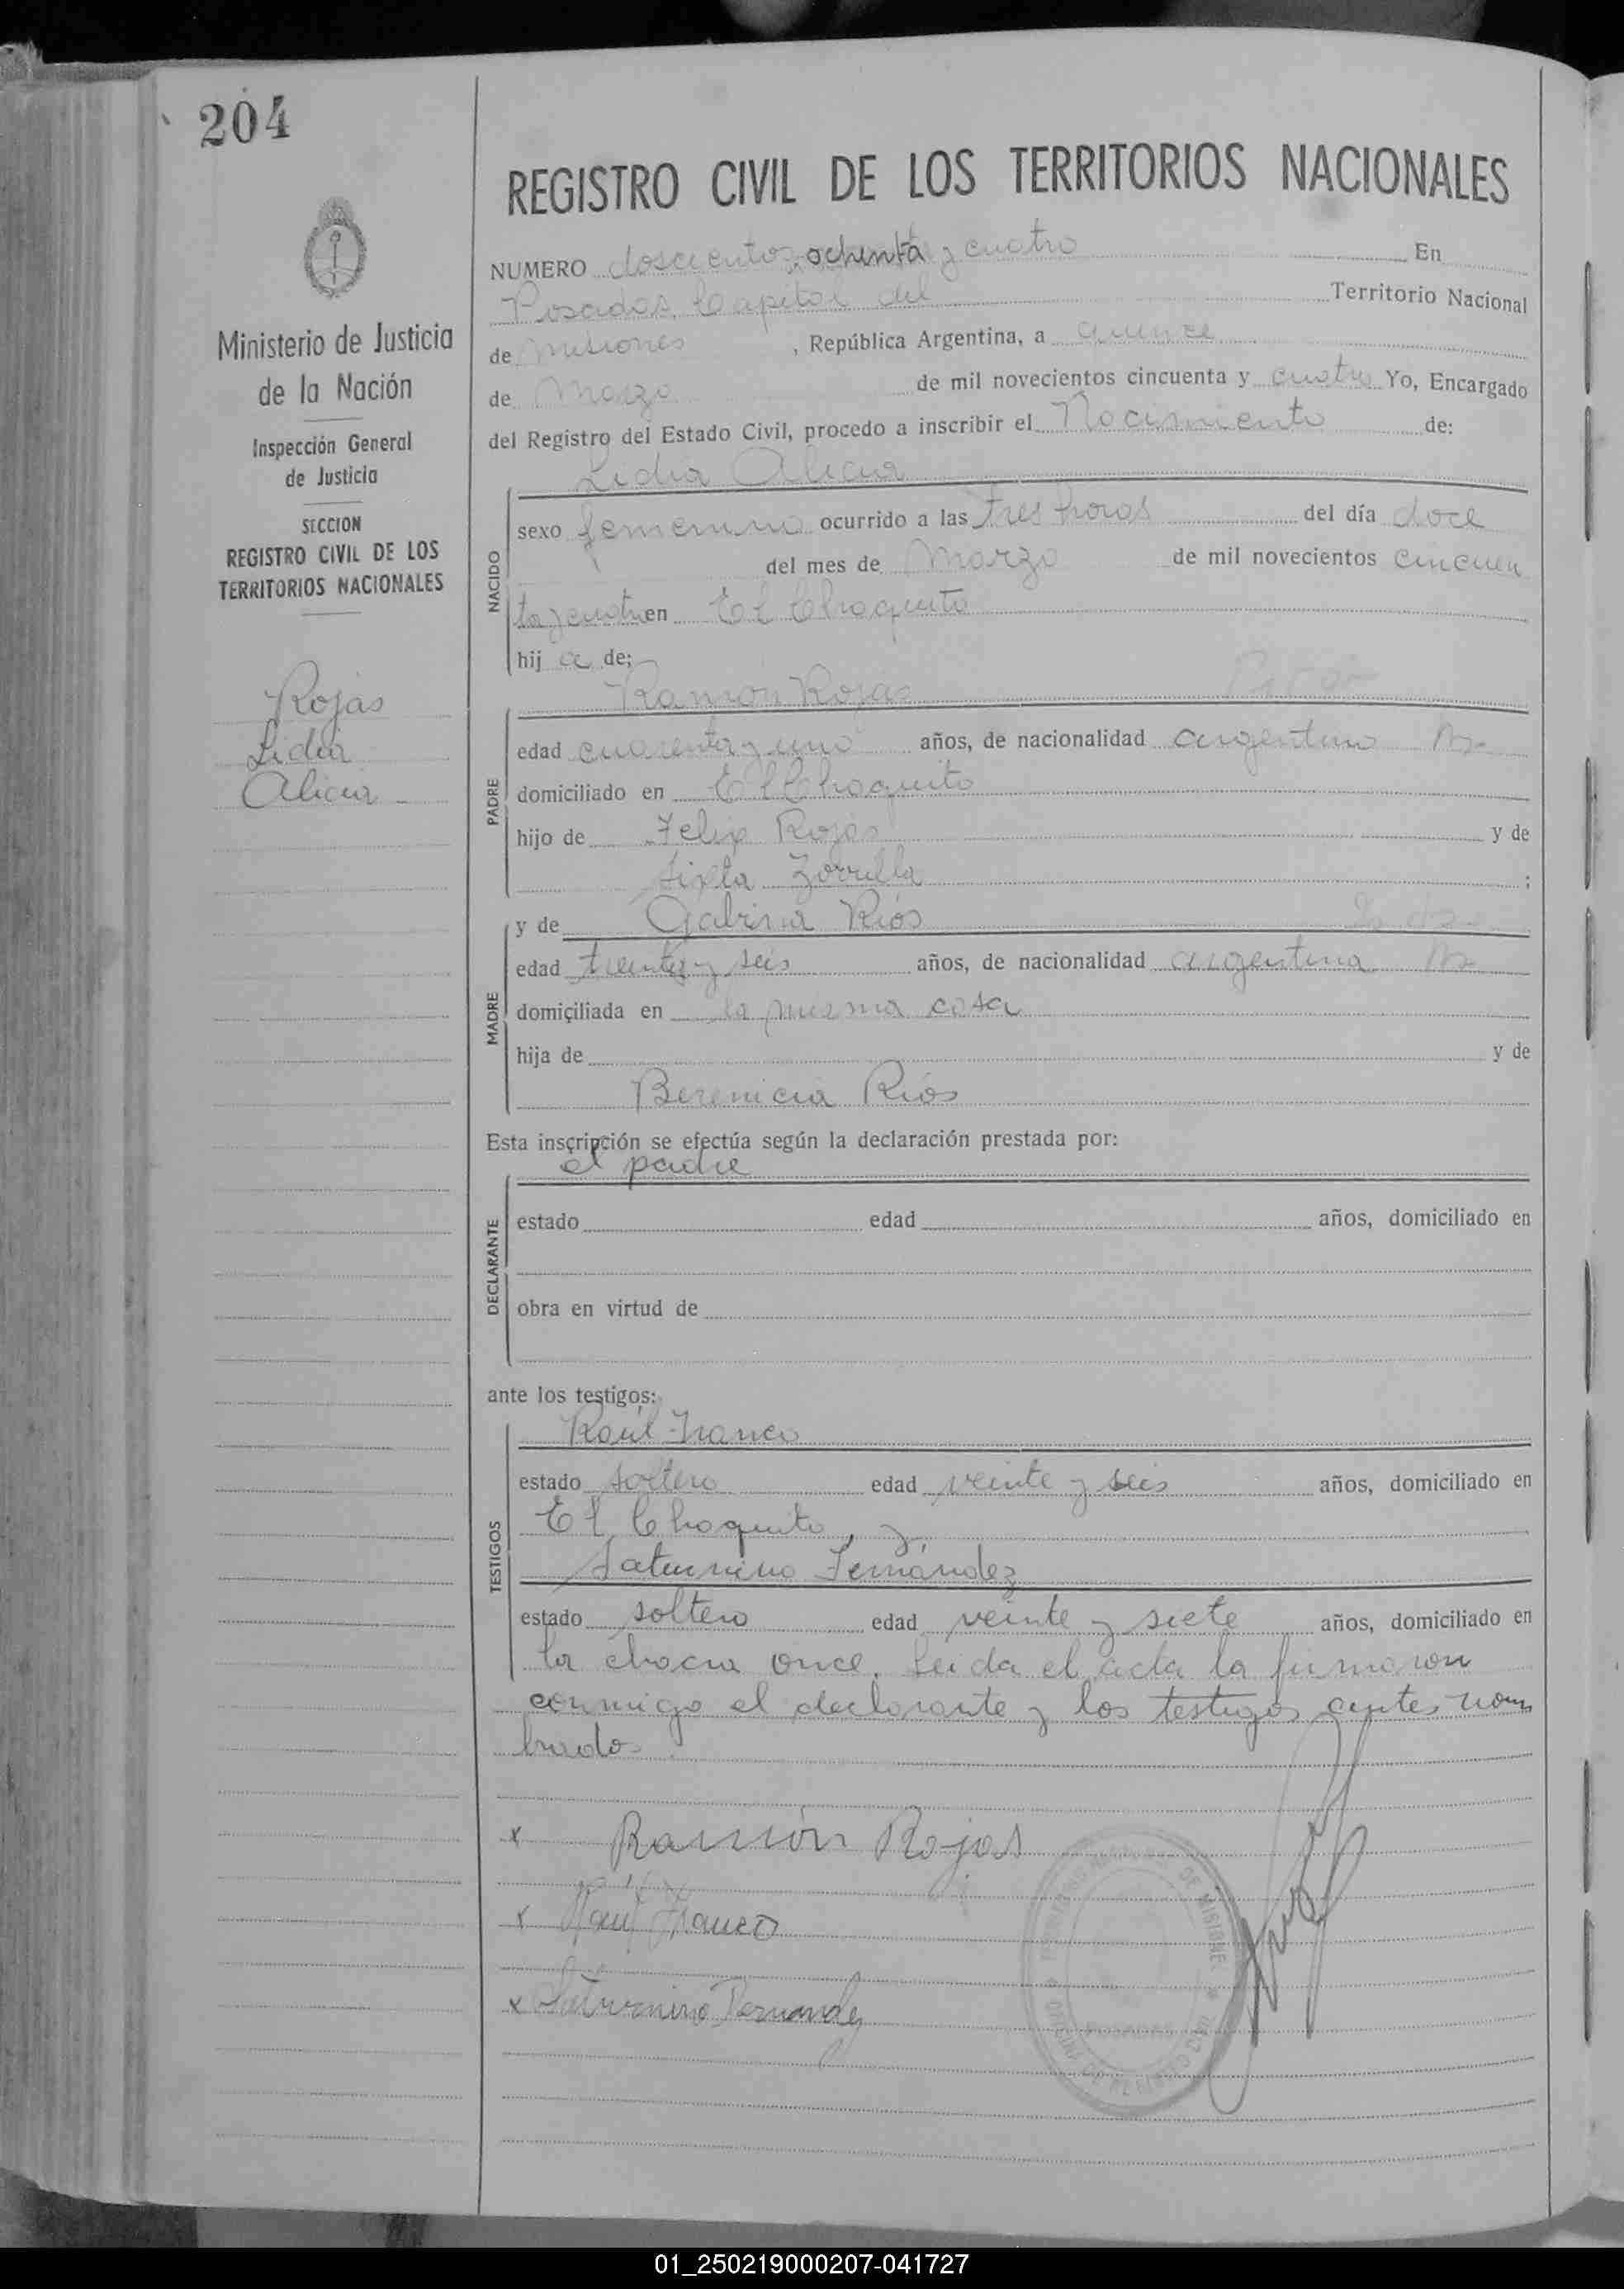 204
REGISTRO CIVIL DE LOS TERRITORIOS NACIONALES
Ministerio de Justicia
de la Nación
Inspección General
de Justicia
SECCION
REGISTRO CIVIL DE LOS
TERRITORIOS NACIONALES
Rojas
Lidia
Alicia
NUMERO doscientos ochenta y cuatro En
Posadas, Capital del Territorio Nacional
de Misiones, República Argentina, a quince
de Marzo de mil novecientos cincuenta y cuatro Yo, Encargado
del Registro del Estado Civil, procedo a inscribir el Nacimiento de:
Lidia Alicia
NACIDO
sexo femenino ocurrido a las tres horas del día doce
del mes de Marzo de mil novecientos cincuen
ta y cuatro en El Chaquito
hij a de:
Ramón Rojas
PADRE
edad cuarenta y uno años, de nacionalidad argentino
domiciliado en El Chaquito
hijo de Felix Rojas y de
Sixta Zorrilla ;
MADRE
y de Gabina Ríos
edad treinta y seis años, de nacionalidad argentina
domiciliada en la misma casa
hija de y de
Berenicia Ríos
Esta inscripción se efectúa según la declaración prestada por:
el padre
DECLARANTE
estado edad años, domiciliado en
obra en virtud de
ante los testigos:
Raúl Franco
TESTIGOS
estado soltero edad veinte y seis años, domiciliado en
El Chaquito, y
Saturnino Fernández
estado soltero edad veinte y siete años, domiciliado en
la chacra once. Leida el acta la firmaron
conmigo el declarante y los testigos antes nom
brados.
x Ramón Rojas
x Raul Franco
x Saturnino Fernandez
DE MISIONE
01_250219000207-041727